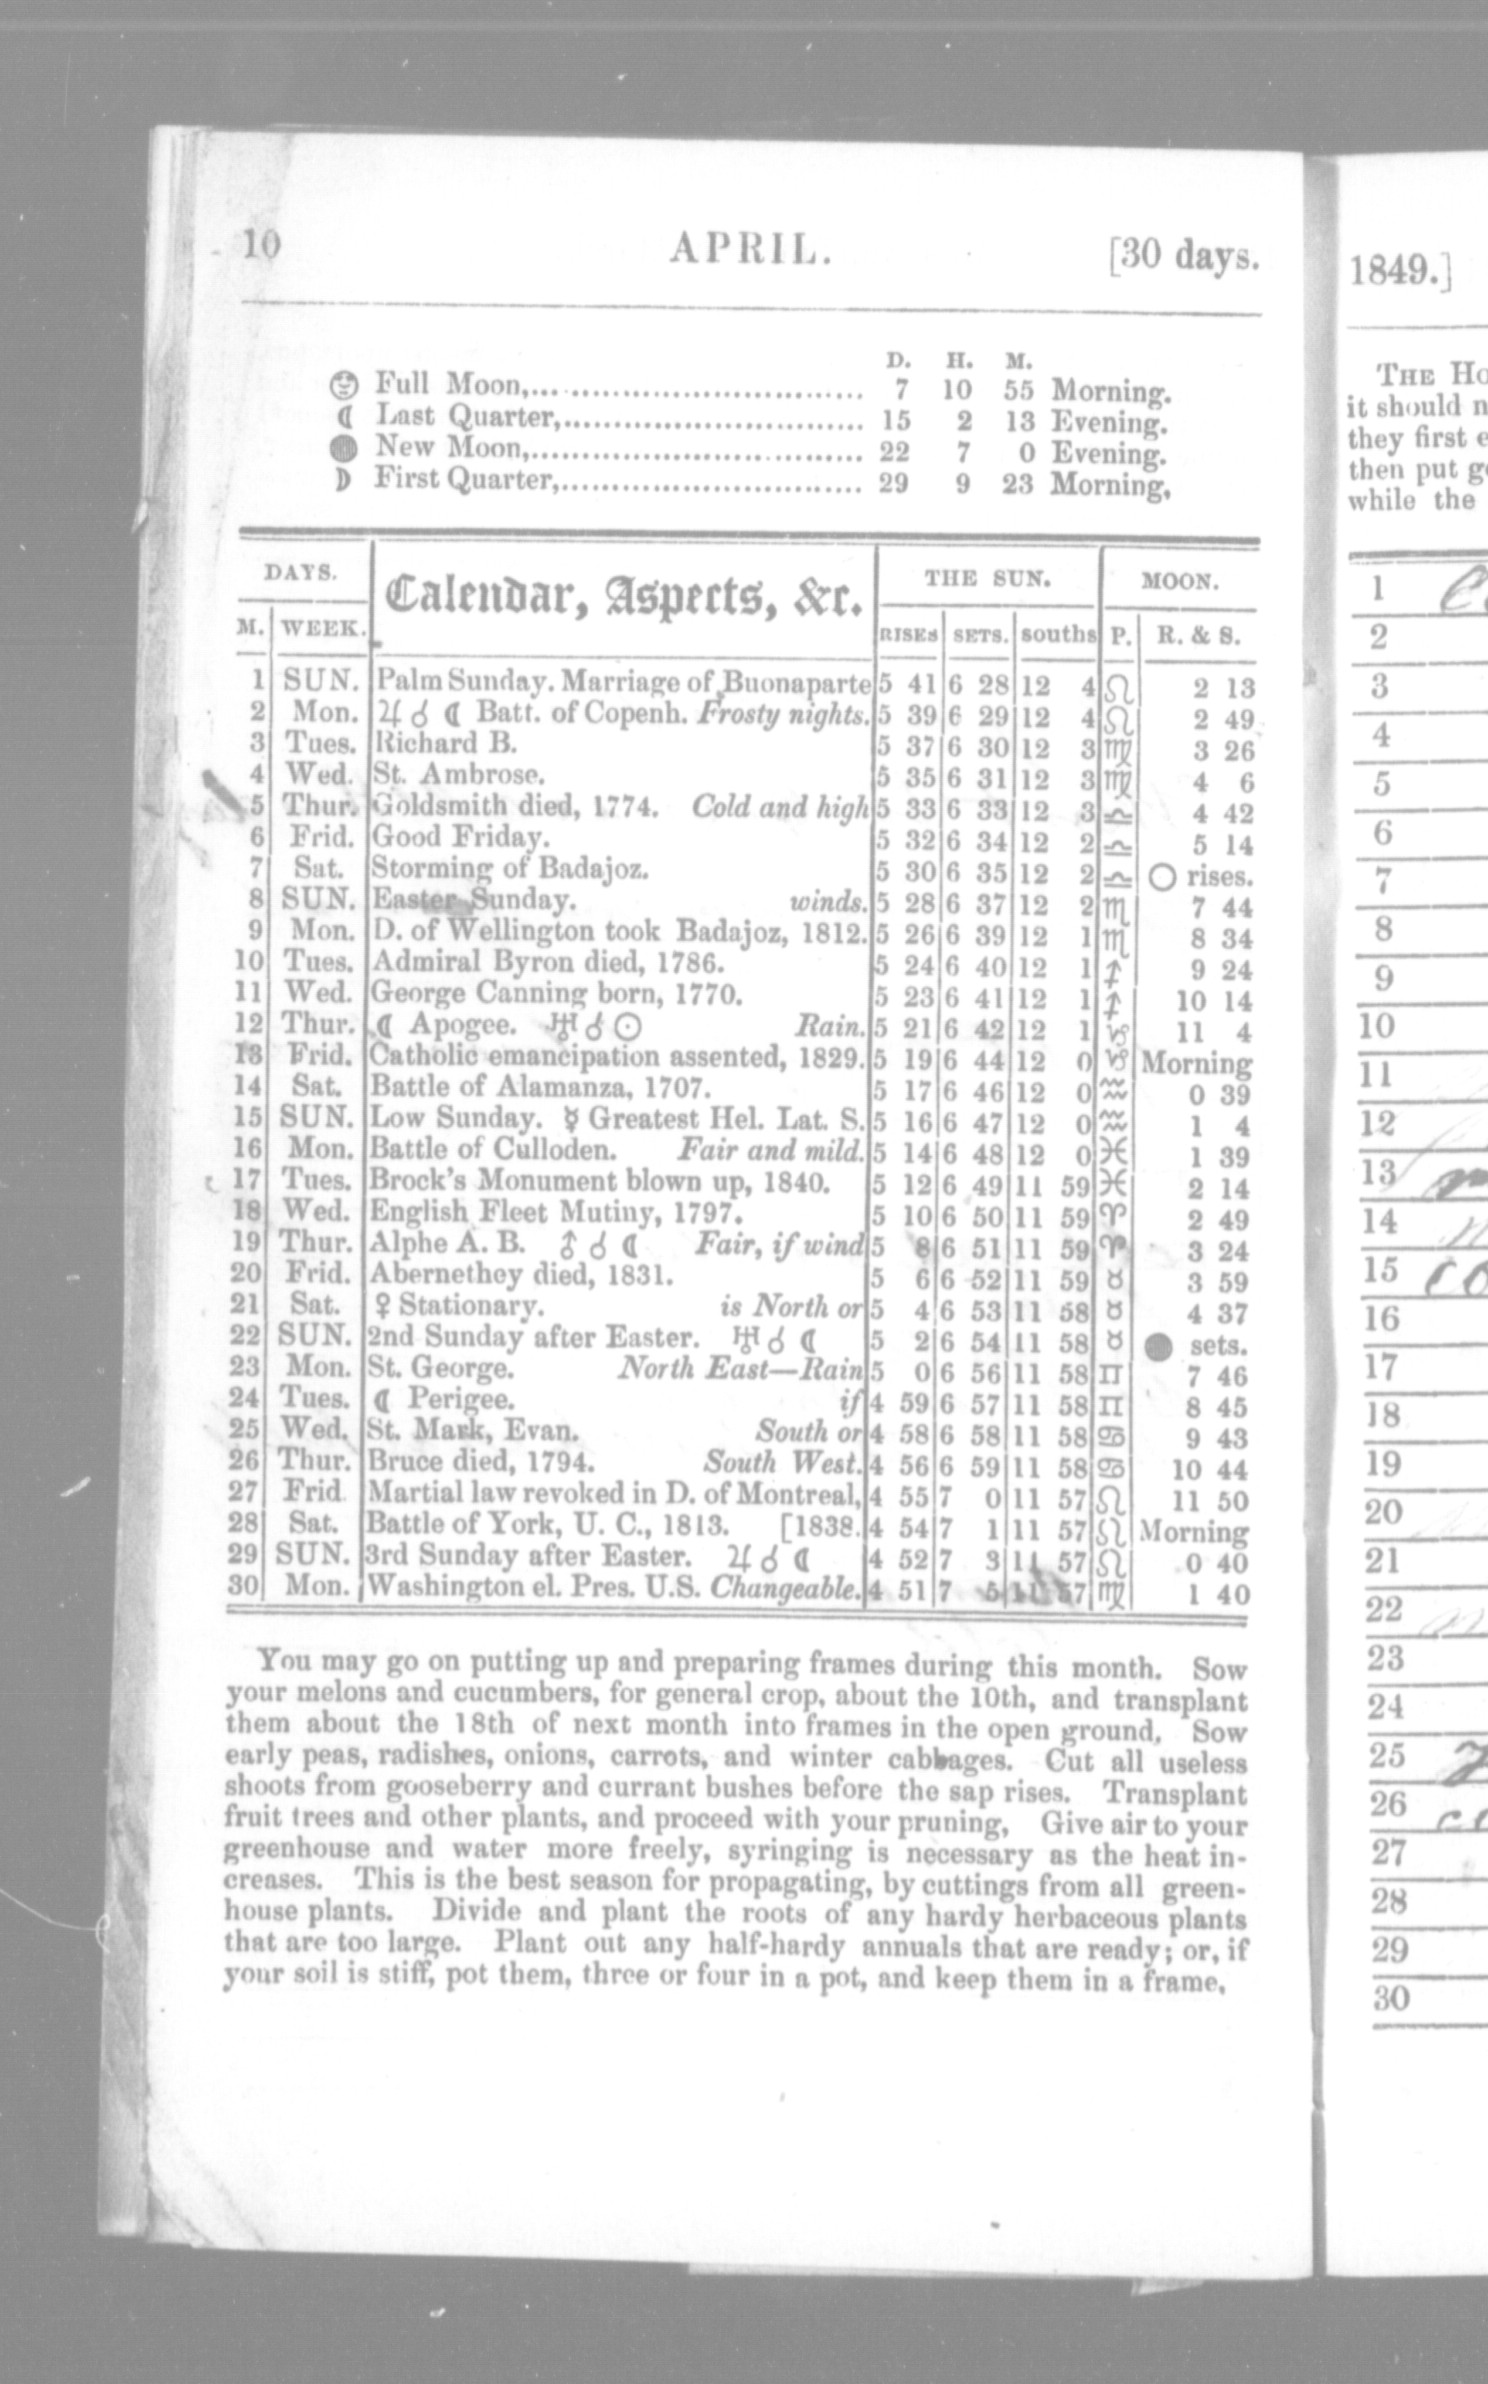 10 APRIL. [30 days.
D. H. M.
Full Moon,................................ 7 10 55 Morning.
☾ Last Quarter,............................. 15 2 13 Evening.
● New Moon,................................ 22 7 0 Evening.
☽ First Quarter,............................. 29 9 23 Morning,
DAYS. Calendar, Aspects, &c. THE SUN. MOON.
M. WEEK. RISES SETS. souths P. R. & S.
1 SUN. Palm Sunday. Marriage of Buonaparte 5 41 6 28 12 4 ♌ 2 13
2 Mon. ♃ ☌ ☾ Batt. of Copenh. Frosty nights. 5 39 6 29 12 4 ♌ 2 49
3 Tues. Richard B. 5 37 6 30 12 3 ♍ 3 26
4 Wed. St. Ambrose. 5 35 6 31 12 3 ♍ 4 6
5 Thur. Goldsmith died, 1774. Cold and high 5 33 6 33 12 3 ♎ 4 42
6 Frid. Good Friday. 5 32 6 34 12 2 ♎ 5 14
7 Sat. Storming of Badajoz. 5 30 6 35 12 2 ♎ ○ rises.
8 SUN. Easter Sunday. winds. 5 28 6 37 12 2 ♏ 7 44
9 Mon. D. of Wellington took Badajoz, 1812. 5 26 6 39 12 1 ♏ 8 34
10 Tues. Admiral Byron died, 1786. 5 24 6 40 12 1 ♐ 9 24
11 Wed. George Canning born, 1770. 5 23 6 41 12 1 ♐ 10 14
12 Thur. ☾ Apogee. ♅ ☌ ☉ Rain. 5 21 6 42 12 1 ♑ 11 4
13 Frid. Catholic emancipation assented, 1829. 5 19 6 44 12 0 ♑ Morning
14 Sat. Battle of Alamanza, 1707. 5 17 6 46 12 0 ♒ 0 39
15 SUN. Low Sunday. ☿ Greatest Hel. Lat. S. 5 16 6 47 12 0 ♒ 1 4
16 Mon. Battle of Culloden. Fair and mild. 5 14 6 48 12 0 ♓ 1 39
17 Tues. Brock's Monument blown up, 1840. 5 12 6 49 11 59 ♓ 2 14
18 Wed. English Fleet Mutiny, 1797. 5 10 6 50 11 59 ♈ 2 49
19 Thur. Alphe A. B. ♂ ☌ ☾ Fair, if wind 5 8 6 51 11 59 ♈ 3 24
20 Frid. Abernethey died, 1831. 5 6 6 52 11 59 ♉ 3 59
21 Sat. ♀ Stationary. is North or 5 4 6 53 11 58 ♉ 4 37
22 SUN. 2nd Sunday after Easter. ♅ ☌ ☾ 5 2 6 54 11 58 ♉ ● sets.
23 Mon. St. George. North East—Rain 5 0 6 56 11 58 ♊ 7 46
24 Tues. ☾ Perigee. if 4 59 6 57 11 58 ♊ 8 45
25 Wed. St. Mark, Evan. South or 4 58 6 58 11 58 ♋ 9 43
26 Thur. Bruce died, 1794. South West. 4 56 6 59 11 58 ♋ 10 44
27 Frid. Martial law revoked in D. of Montreal, 4 55 7 0 11 57 ♌ 11 50
28 Sat. Battle of York, U. C., 1813. [1838. 4 54 7 1 11 57 ♌ Morning
29 SUN. 3rd Sunday after Easter. ♃ ☌ ☾ 4 52 7 3 11 57 ♌ 0 40
30 Mon. Washington el. Pres. U.S. Changeable. 4 51 7 5 11 57 ♍ 1 40
You may go on putting up and preparing frames during this month. Sow
your melons and cucumbers, for general crop, about the 10th, and transplant
them about the 18th of next month into frames in the open ground, Sow
early peas, radishes, onions, carrots, and winter cabbages. Cut all useless
shoots from gooseberry and currant bushes before the sap rises. Transplant
fruit trees and other plants, and proceed with your pruning, Give air to your
greenhouse and water more freely, syringing is necessary as the heat in-
creases. This is the best season for propagating, by cuttings from all green-
house plants. Divide and plant the roots of any hardy herbaceous plants
that are too large. Plant out any half-hardy annuals that are ready; or, if
your soil is stiff, pot them, three or four in a pot, and keep them in a frame,
1849.]
THE
it should
they first
then put
while the
1
2
3
4
5
6
7
8
9
10
11
12
13
14
15
16
17
18
19
20
21
22
23
24
25
26
27
28
29
30